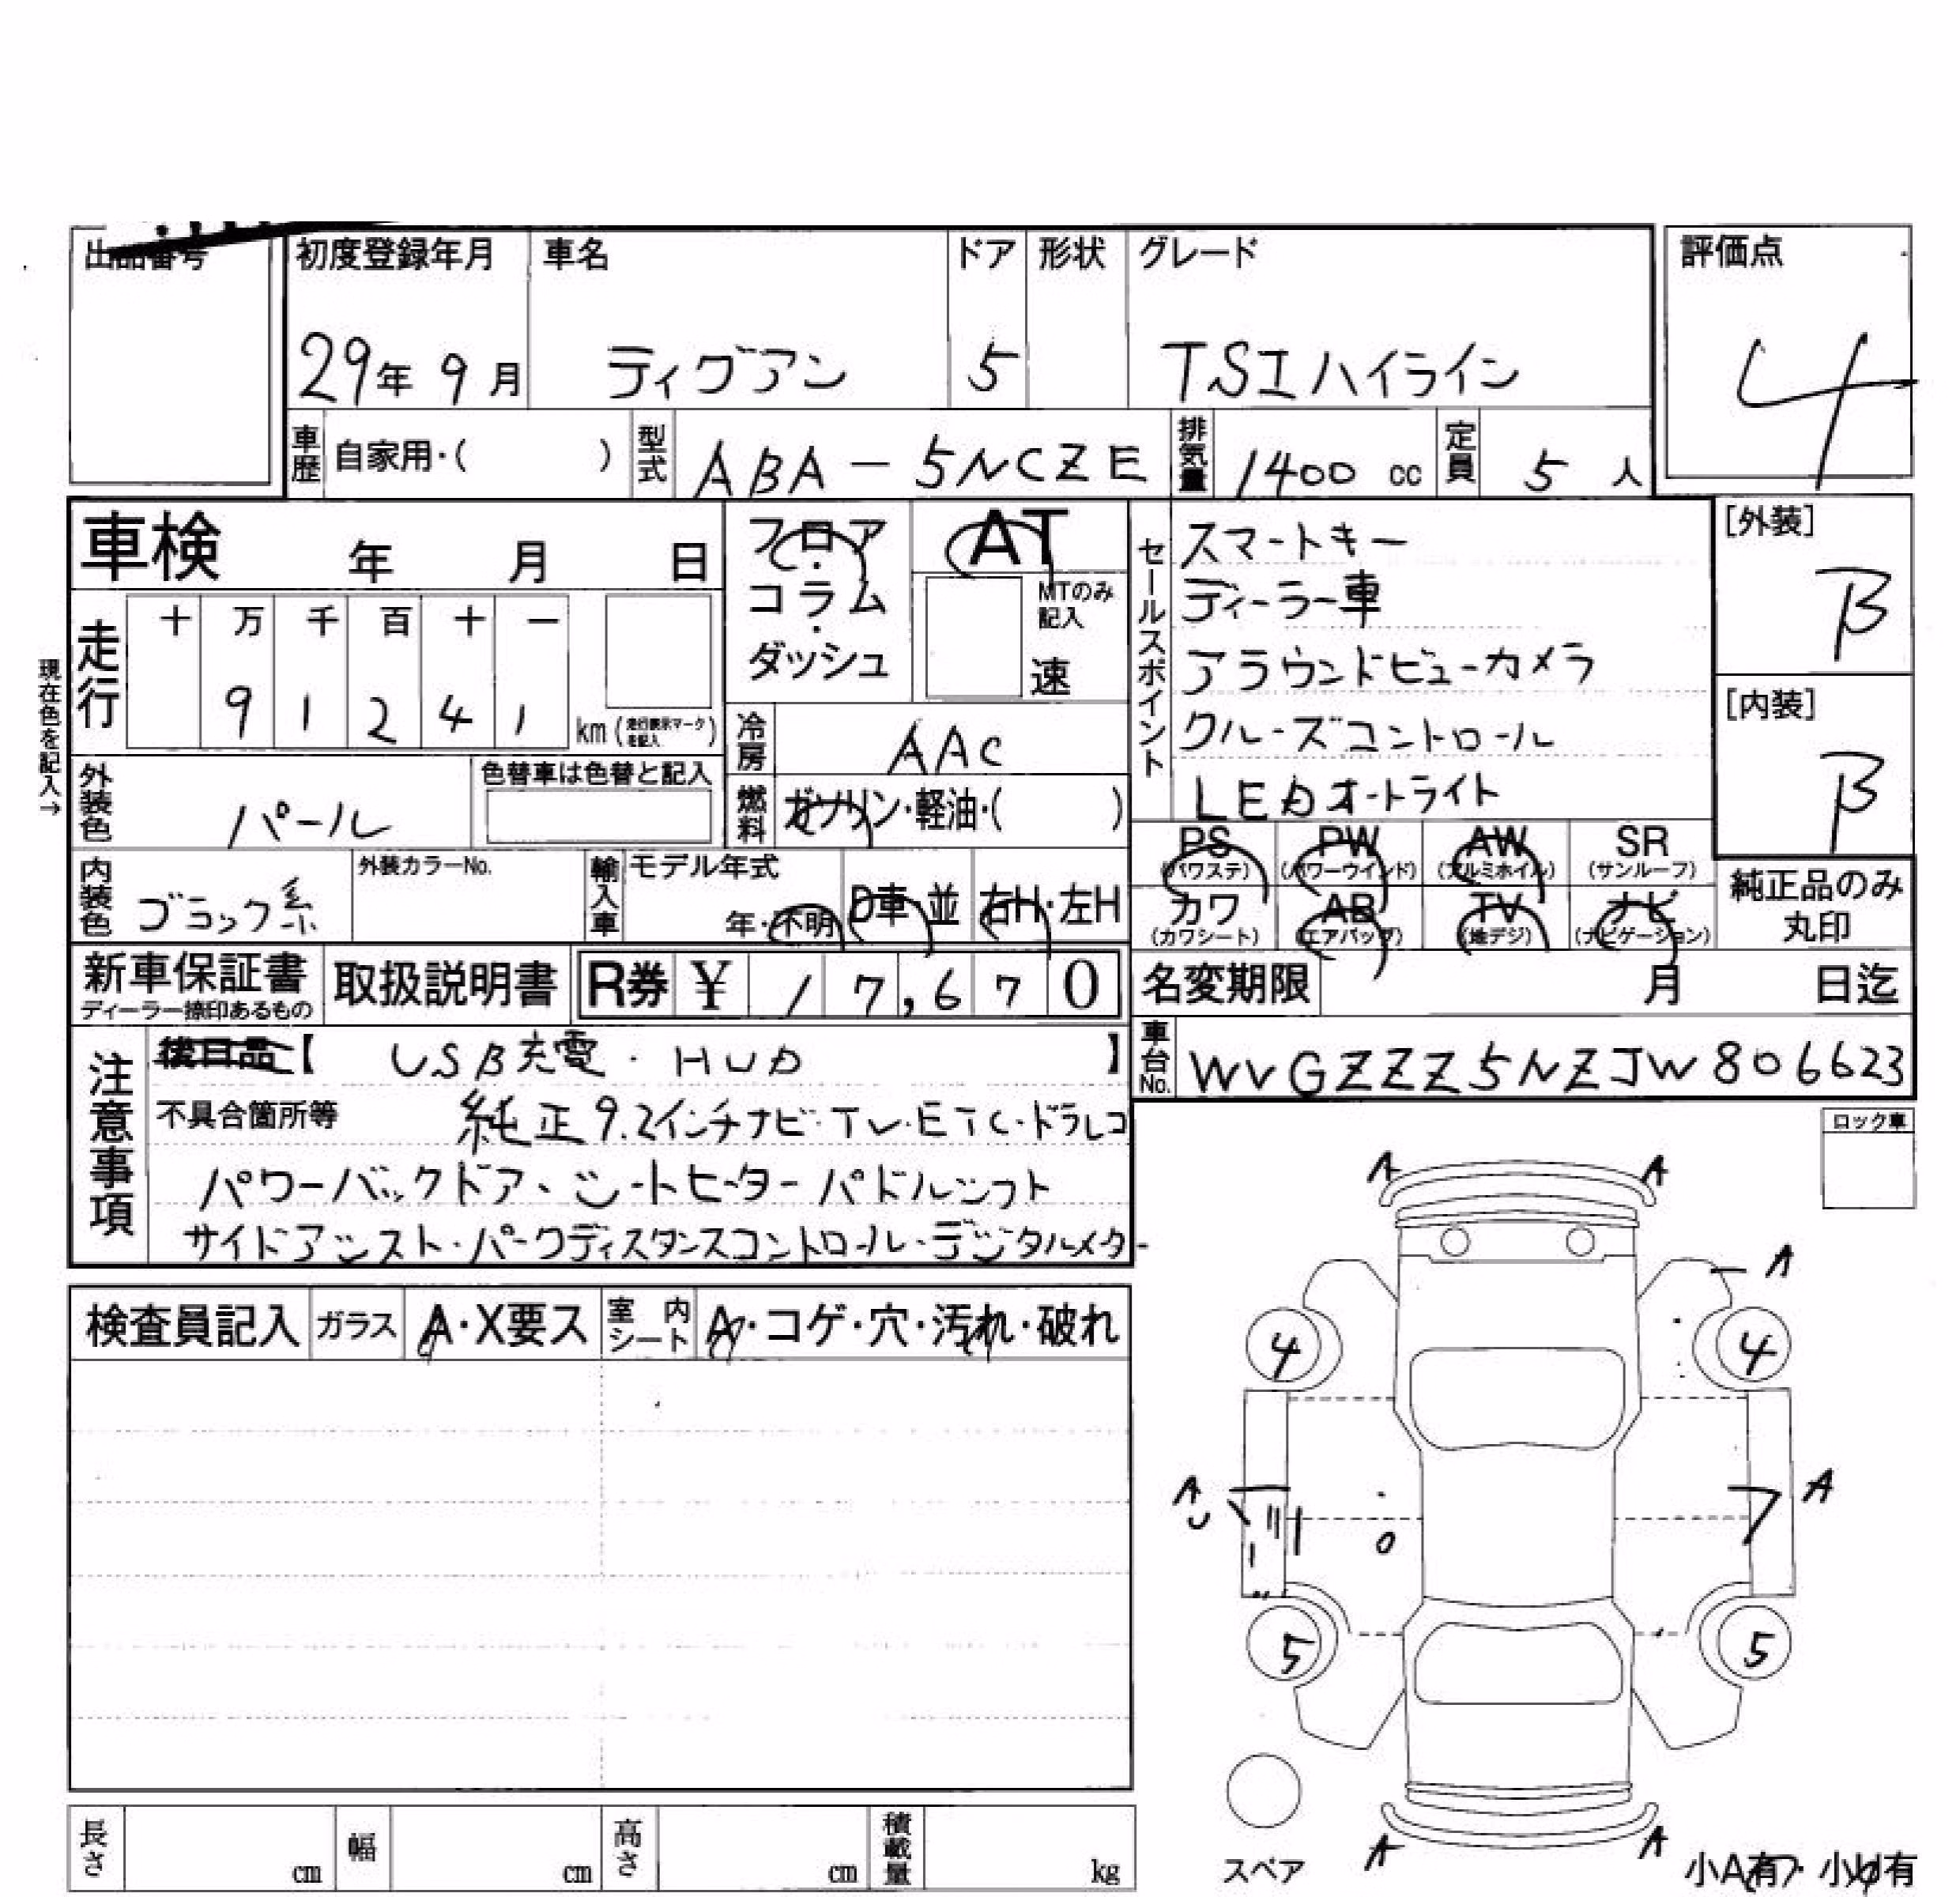 出品番号 初度登録年月 車名 ドア 形状 グレード 評価点
29年 9月 ティグアン 5 TSIハイライン 4
車歴 自家用・( ) 型式 ABA-5NCZE 排気量 1400 cc 定員 5 人
車検 年 月 日
フロア・コラム・ダッシュ
AT
MTのみ記入
速
セールスポイント
スマートキー
ディーラー車
アラウンドビューカメラ
クルーズコントロール
LEDオートライト
[外装]
B
[内装]
B
現在色を記入→
走行 十 万 千 百 十 一
9 1 2 4 1 km (走行表示マークを記入)
冷房 AAC
外装色 パール 色替車は色替と記入
燃料 ガソリン・軽油・( )
PS PW AW SR
(パワステ) (パワーウインド) (アルミホイル) (サンルーフ)
カワ AB TV ナビ
(カワシート) (エアバッグ) (地デジ) (ナビゲーション)
純正品のみ
丸印
内装色 ブラック系 外装カラーNo. 輸入車 モデル年式
年・不明 D車・並 右H・左H
新車保証書 取扱説明書 R券 ¥ 17,670
ディーラー捺印あるもの
名変期限 月 日迄
車台No. WVGZZZ5NZJW806623
注意事項
後日品【 USB充電・HUD 】
不具合箇所等 純正9.2インチナビ・TV・ETC・ドラレコ
パワーバックドア、シートヒーター パドルシフト
サイドアシスト・パークディスタンスコントロール・デジタルメター
ロック車
検査員記入 ガラス A・X要ス 室内シート A・コゲ・穴・汚れ・破れ
A A
A
4 4
A A
U
5 5
A A
スペア
小A有・小U有
長さ cm 幅 cm 高さ cm 積載量 kg